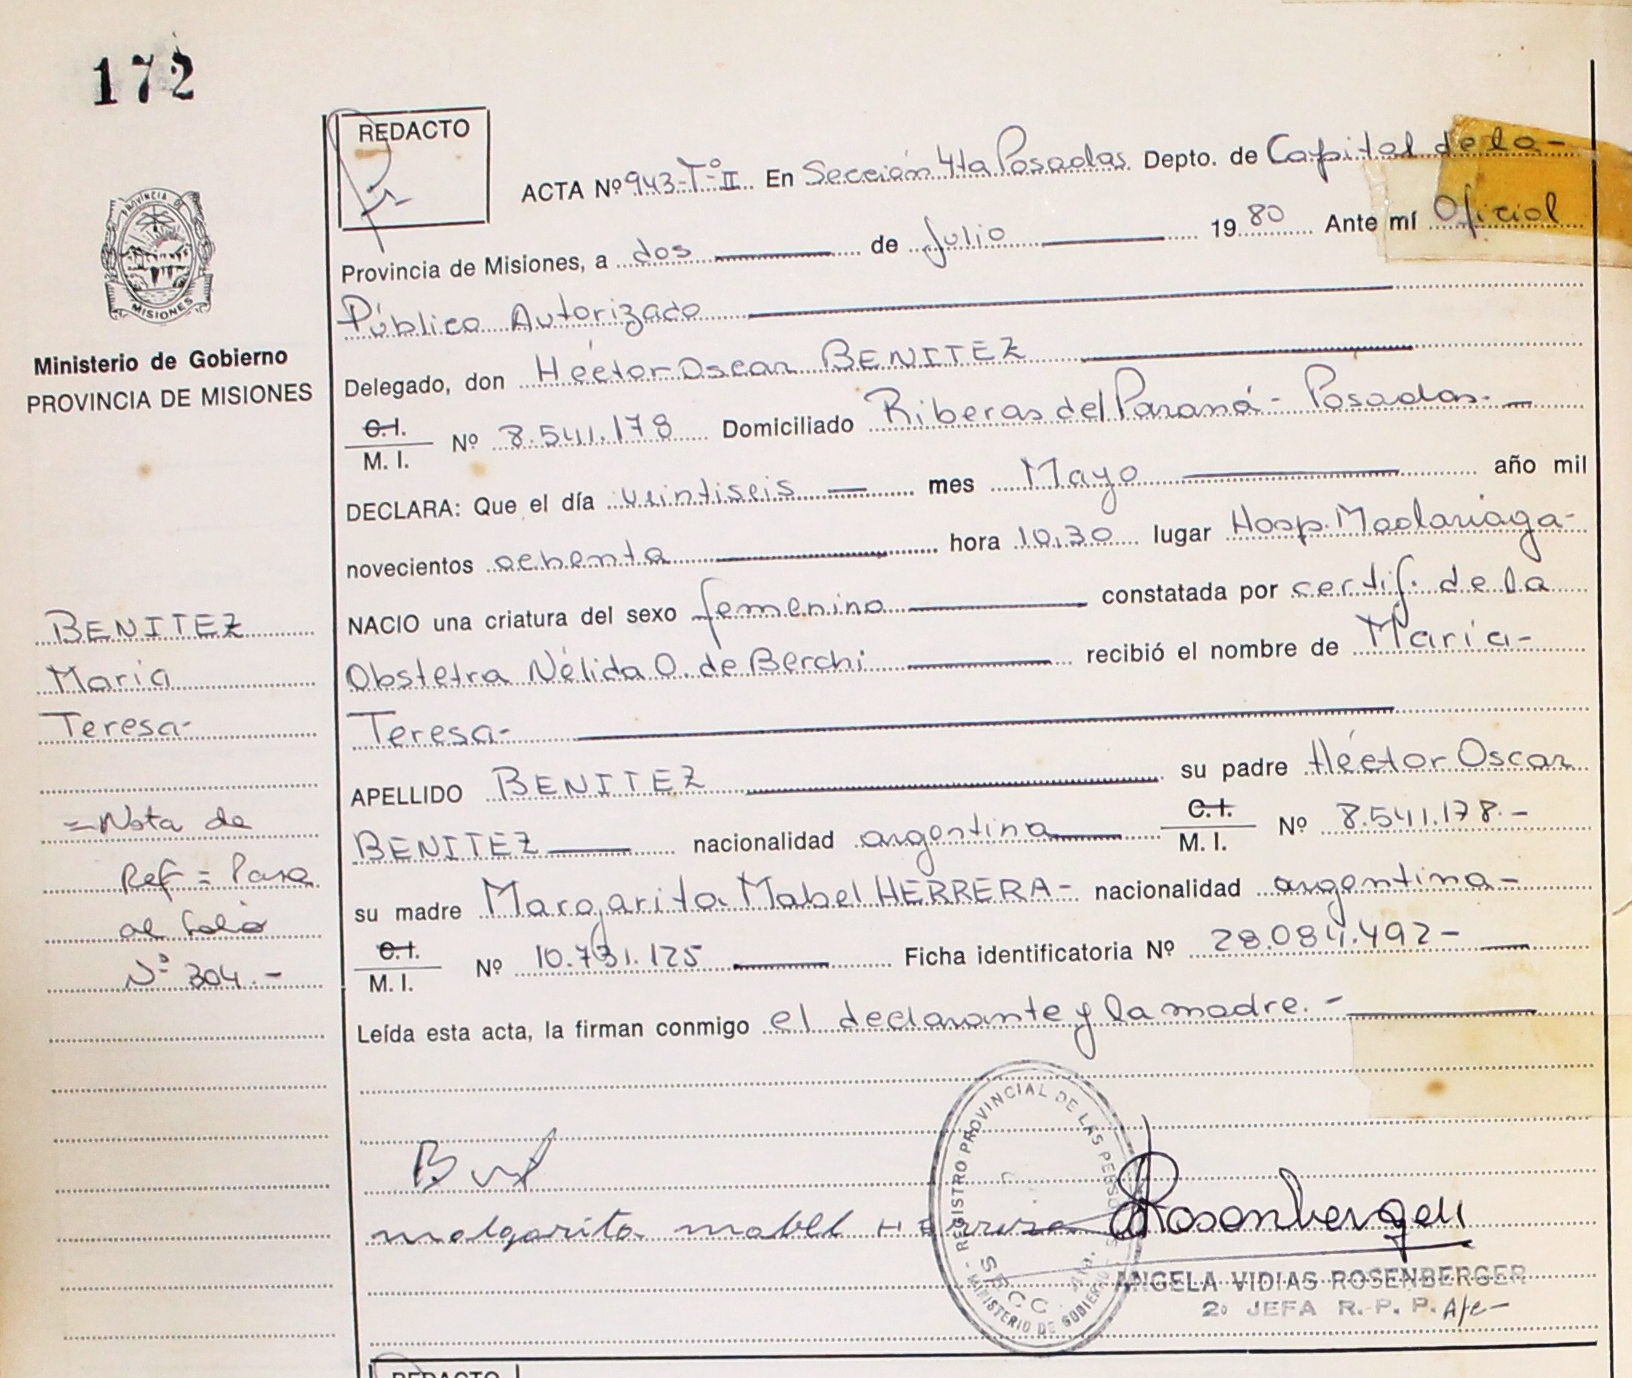 172
REDACTO
ACTA Nº 943-Tº II. En Sección 4ta Posadas. Depto. de Capital de la-
Provincia de Misiones, a dos de Julio 1980 Ante mí Oficial
Público Autorizado
Delegado, don Héctor Oscar BENITEZ
C.I.
M. I. Nº 8.541.178 Domiciliado Riberas del Paraná - Posadas.-
DECLARA: Que el día veintiseis mes Mayo año mil
novecientos ochenta hora 10,30 lugar Hosp. Madariaga-
NACIO una criatura del sexo femenino constatada por certif. de la
Obstetra Nélida O. de Berchi recibió el nombre de María-
Teresa-
APELLIDO BENITEZ su padre Héctor Oscar
BENITEZ nacionalidad argentina C.I. M. I. Nº 8.541.178.-
su madre Margarita Mabel HERRERA- nacionalidad argentina-
C.I.
M. I. Nº 10.731.125 Ficha identificatoria Nº 28.084.492-
Leída esta acta, la firman conmigo el declarante y la madre.-
PROVINCIA DE
MISIONES
Ministerio de Gobierno
PROVINCIA DE MISIONES
BENITEZ
María
Teresa-
=Nota de
Ref = Pasa
al folio
Nº 304.-
malgarita mabel Herrera
Rosenberger
REGISTRO PROVINCIAL DE LAS PERSONAS
MINISTERIO DE GOBIERNO
SECC. 4ta.
ANGELA VIDIAS ROSENBERGER
2º JEFA R. P. P.
REDACTO